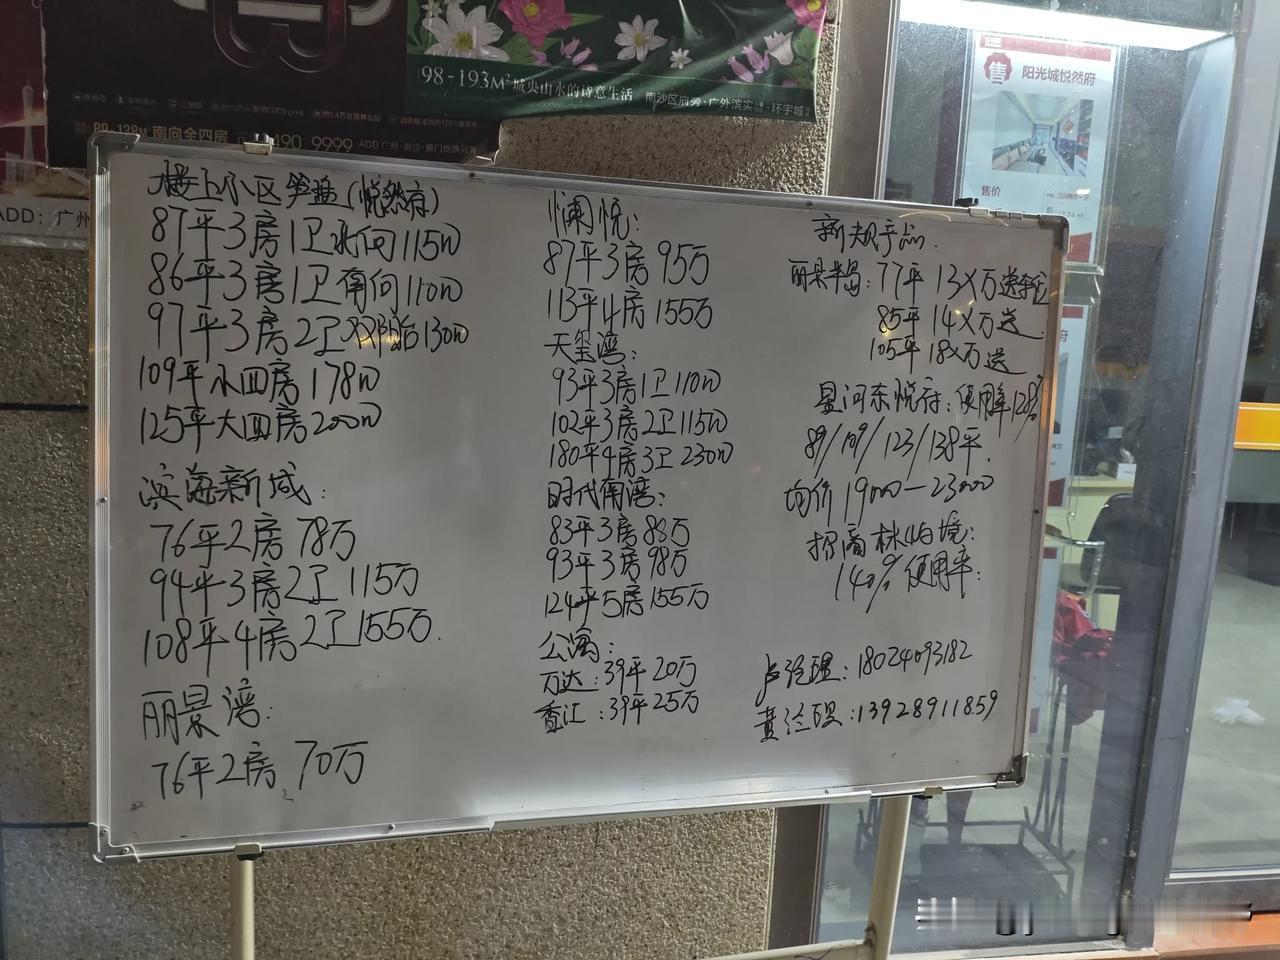 98-193M² 城央山水的诗意生活 南沙区府旁·广外滨实·环宇城
89-138M² 南向全四房 490 9999 ADD 广州·南沙·蕉门地铁站
ADD：广州
售
阳光城悦然府
售价
楼上小区笋盘(悦然府)
87平3房1卫北向115W
86平3房1卫南向110W
97平3房2卫双阳台130W
109平小四房178W
125平大四房200W
滨海新城:
76平2房 78万
94平3房2卫 115万
108平4房2卫155万.
丽景湾:
76平2房 70万
澜悦:
87平3房 95万
113平4房 155万
天玺湾:
93平3房1卫110W
102平3房2卫115W
180平4房3卫230W
时代南湾:
83平3房88万
93平3房98万
124平5房155万
公寓:
万达:39平20万
香江:39平25万
新规产品.
丽景半岛:77平 13X万送车位
85平 14X万送
105平 18X万送
星河东悦府:使用率128%
89/109/123/138平.
均价19000—23000
招商林屿境:
140%使用率.
卢经理:18024093182
黄经理:13928911859